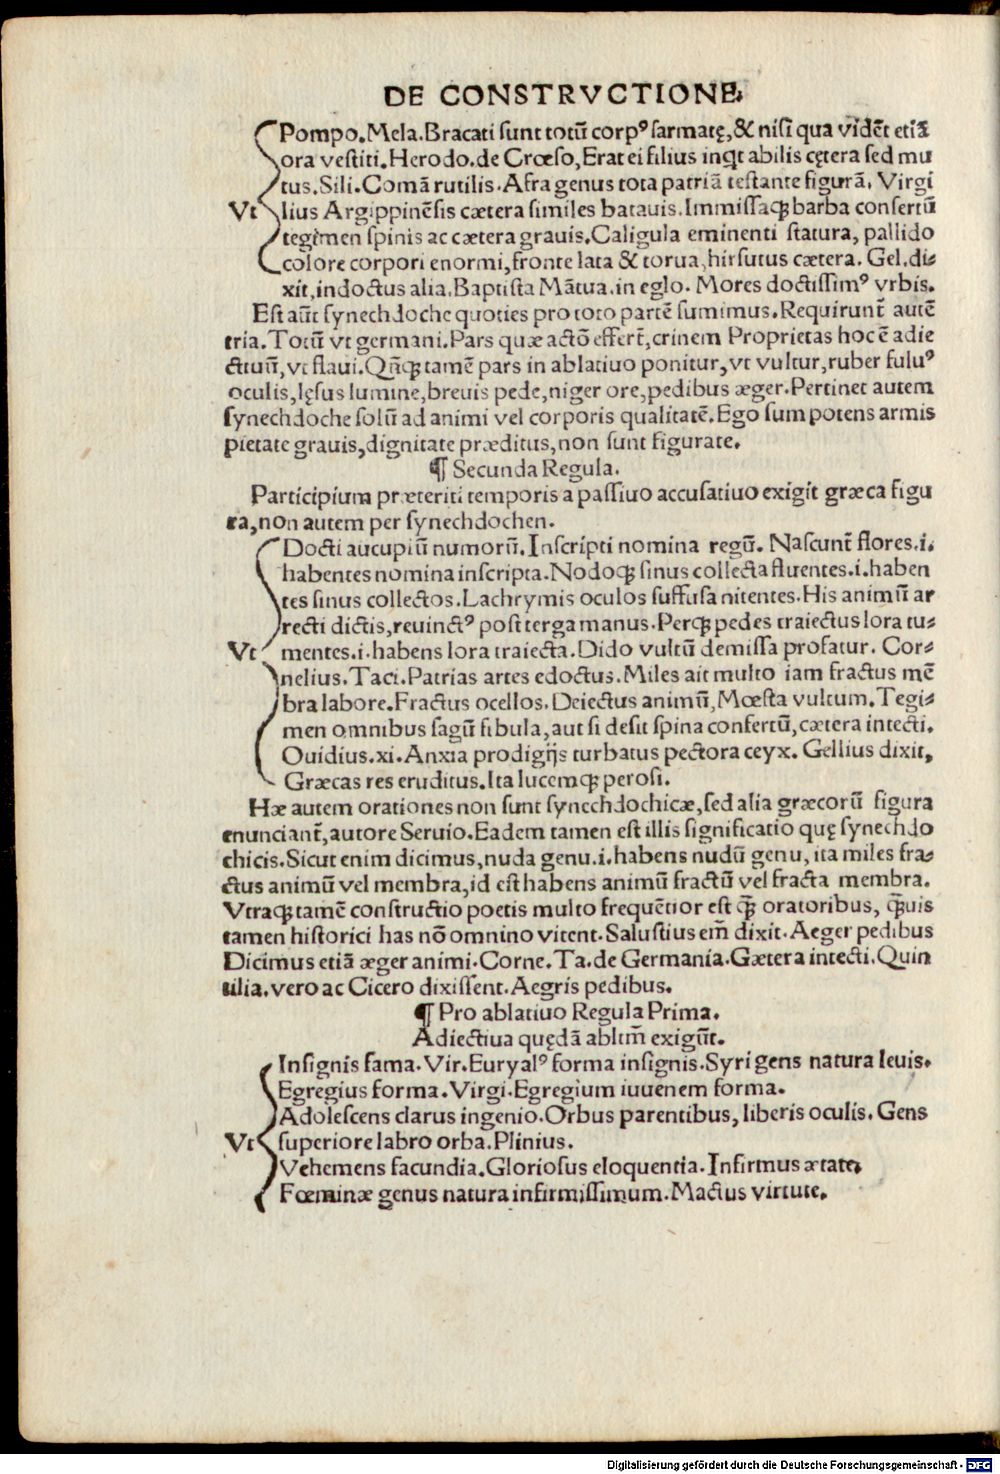 DE CONSTRVCTIONE.
Pompo.Mela.Bracati sunt totũ corpꝰ sarmatę,& nisi qua vidẽt etiã
ora vestiti.Herodo.de Crœso,Erat ei filius inqt abilis cętera sed mu
tus.Sili.Comã rutilis.Afra genus tota patriã testante figurã. Virgi
Vt lius Argippinẽsis cætera similes batauis.Immissaqꝫ barba consertũ
tegimen spinis ac cætera grauis.Caligula eminenti statura, pallido
colore corpori enormi,fronte lata & torua,hirsutus cætera. Gel.di⸗
xit,indoctus alia.Baptista Mãtua.in eglo. Mores doctissimꝰ vrbis.
Est aũt synechdoche quoties pro toto partẽ sumimus.Requirunt̃ autẽ
tria.Totũ vt germani.Pars quæ actõ effert̃,crinem Proprietas hoc ẽ adie
ctiuũ,vt flaui.Qñqꝫ tamẽ pars in ablatiuo ponitur,vt vultur,ruber fuluꝰ
oculis,lęsus lumine,breuis pede,niger ore,pedibus æger.Pertinet autem
synechdoche solũ ad animi vel corporis qualitatẽ.Ego sum potens armis
pietate grauis,dignitate præditus,non sunt figurate.
¶ Secunda Regula.
Participium præteriti temporis a passiuo accusatiuo exigit græca figu
ra,non autem per synechdochen.
Docti aucupiũ numorũ.Inscripti nomina regũ. Nascunt̃ flores.i.
habentes nomina inscripta.Nodoqꝫ sinus collecta fluentes.i.haben
tes sinus collectos.Lachrymis oculos suffusa nitentes.His animũ ar
recti dictis,reuinctꝰ post terga manus.Perqꝫ pedes traiectus lora tu⸗
Vt mentes.i.habens lora traiecta.Dido vultũ demissa profatur. Cor⸗
nelius.Taci.Patrias artes edoctus.Miles ait multo iam fractus mẽ
bra labore.Fractus ocellos.Deiectus animũ,Mœsta vultum.Tegi⸗
men omnibus sagũ fibula,aut si desit spina consertũ,cætera intecti.
Ouidius.xi.Anxia prodigijs turbatus pectora ceyx. Gellius dixit,
Græcas res eruditus.Ita lucemqꝫ perosi.
Hæ autem orationes non sunt synecchdochicæ,sed alia græcorũ figura
enunciant̃,autore Seruio.Eadem tamen est illis significatio quę synechdo
chicis.Sicut enim dicimus,nuda genu.i.habens nudũ genu, ita miles fra⸗
ctus animũ vel membra,id est habens animũ fractũ vel fracta membra.
Vtraqꝫ tamẽ constructio poetis multo frequẽtior est qꝫ̃ oratoribus, qꝫ̃uis
tamen historici has nõ omnino vitent.Salustius em̃ dixit.Aeger pedibus
Dicimus etiã æger animi.Corne.Ta.de Germania.Gætera intecti.Quin
tilia.vero ac Cicero dixissent.Aegris pedibus.
¶ Pro ablatiuo Regula Prima.
Adiectiua quędã abltm̃ exigũt.
Insignis fama.Vir.Euryalꝰ forma insignis.Syri gens natura leuis.
Egregius forma.Virgi.Egregium iuuenem forma.
Adolescens clarus ingenio.Orbus parentibus, liberis oculis. Gens
Vt superiore labro orba.Plinius.
Vehemens facundia.Gloriosus eloquentia.Infirmus ætate,
Fœminæ genus natura infirmissimum.Mactus virtute.
Digitalisierung gefördert durch die Deutsche Forschungsgemeinschaft - DFG